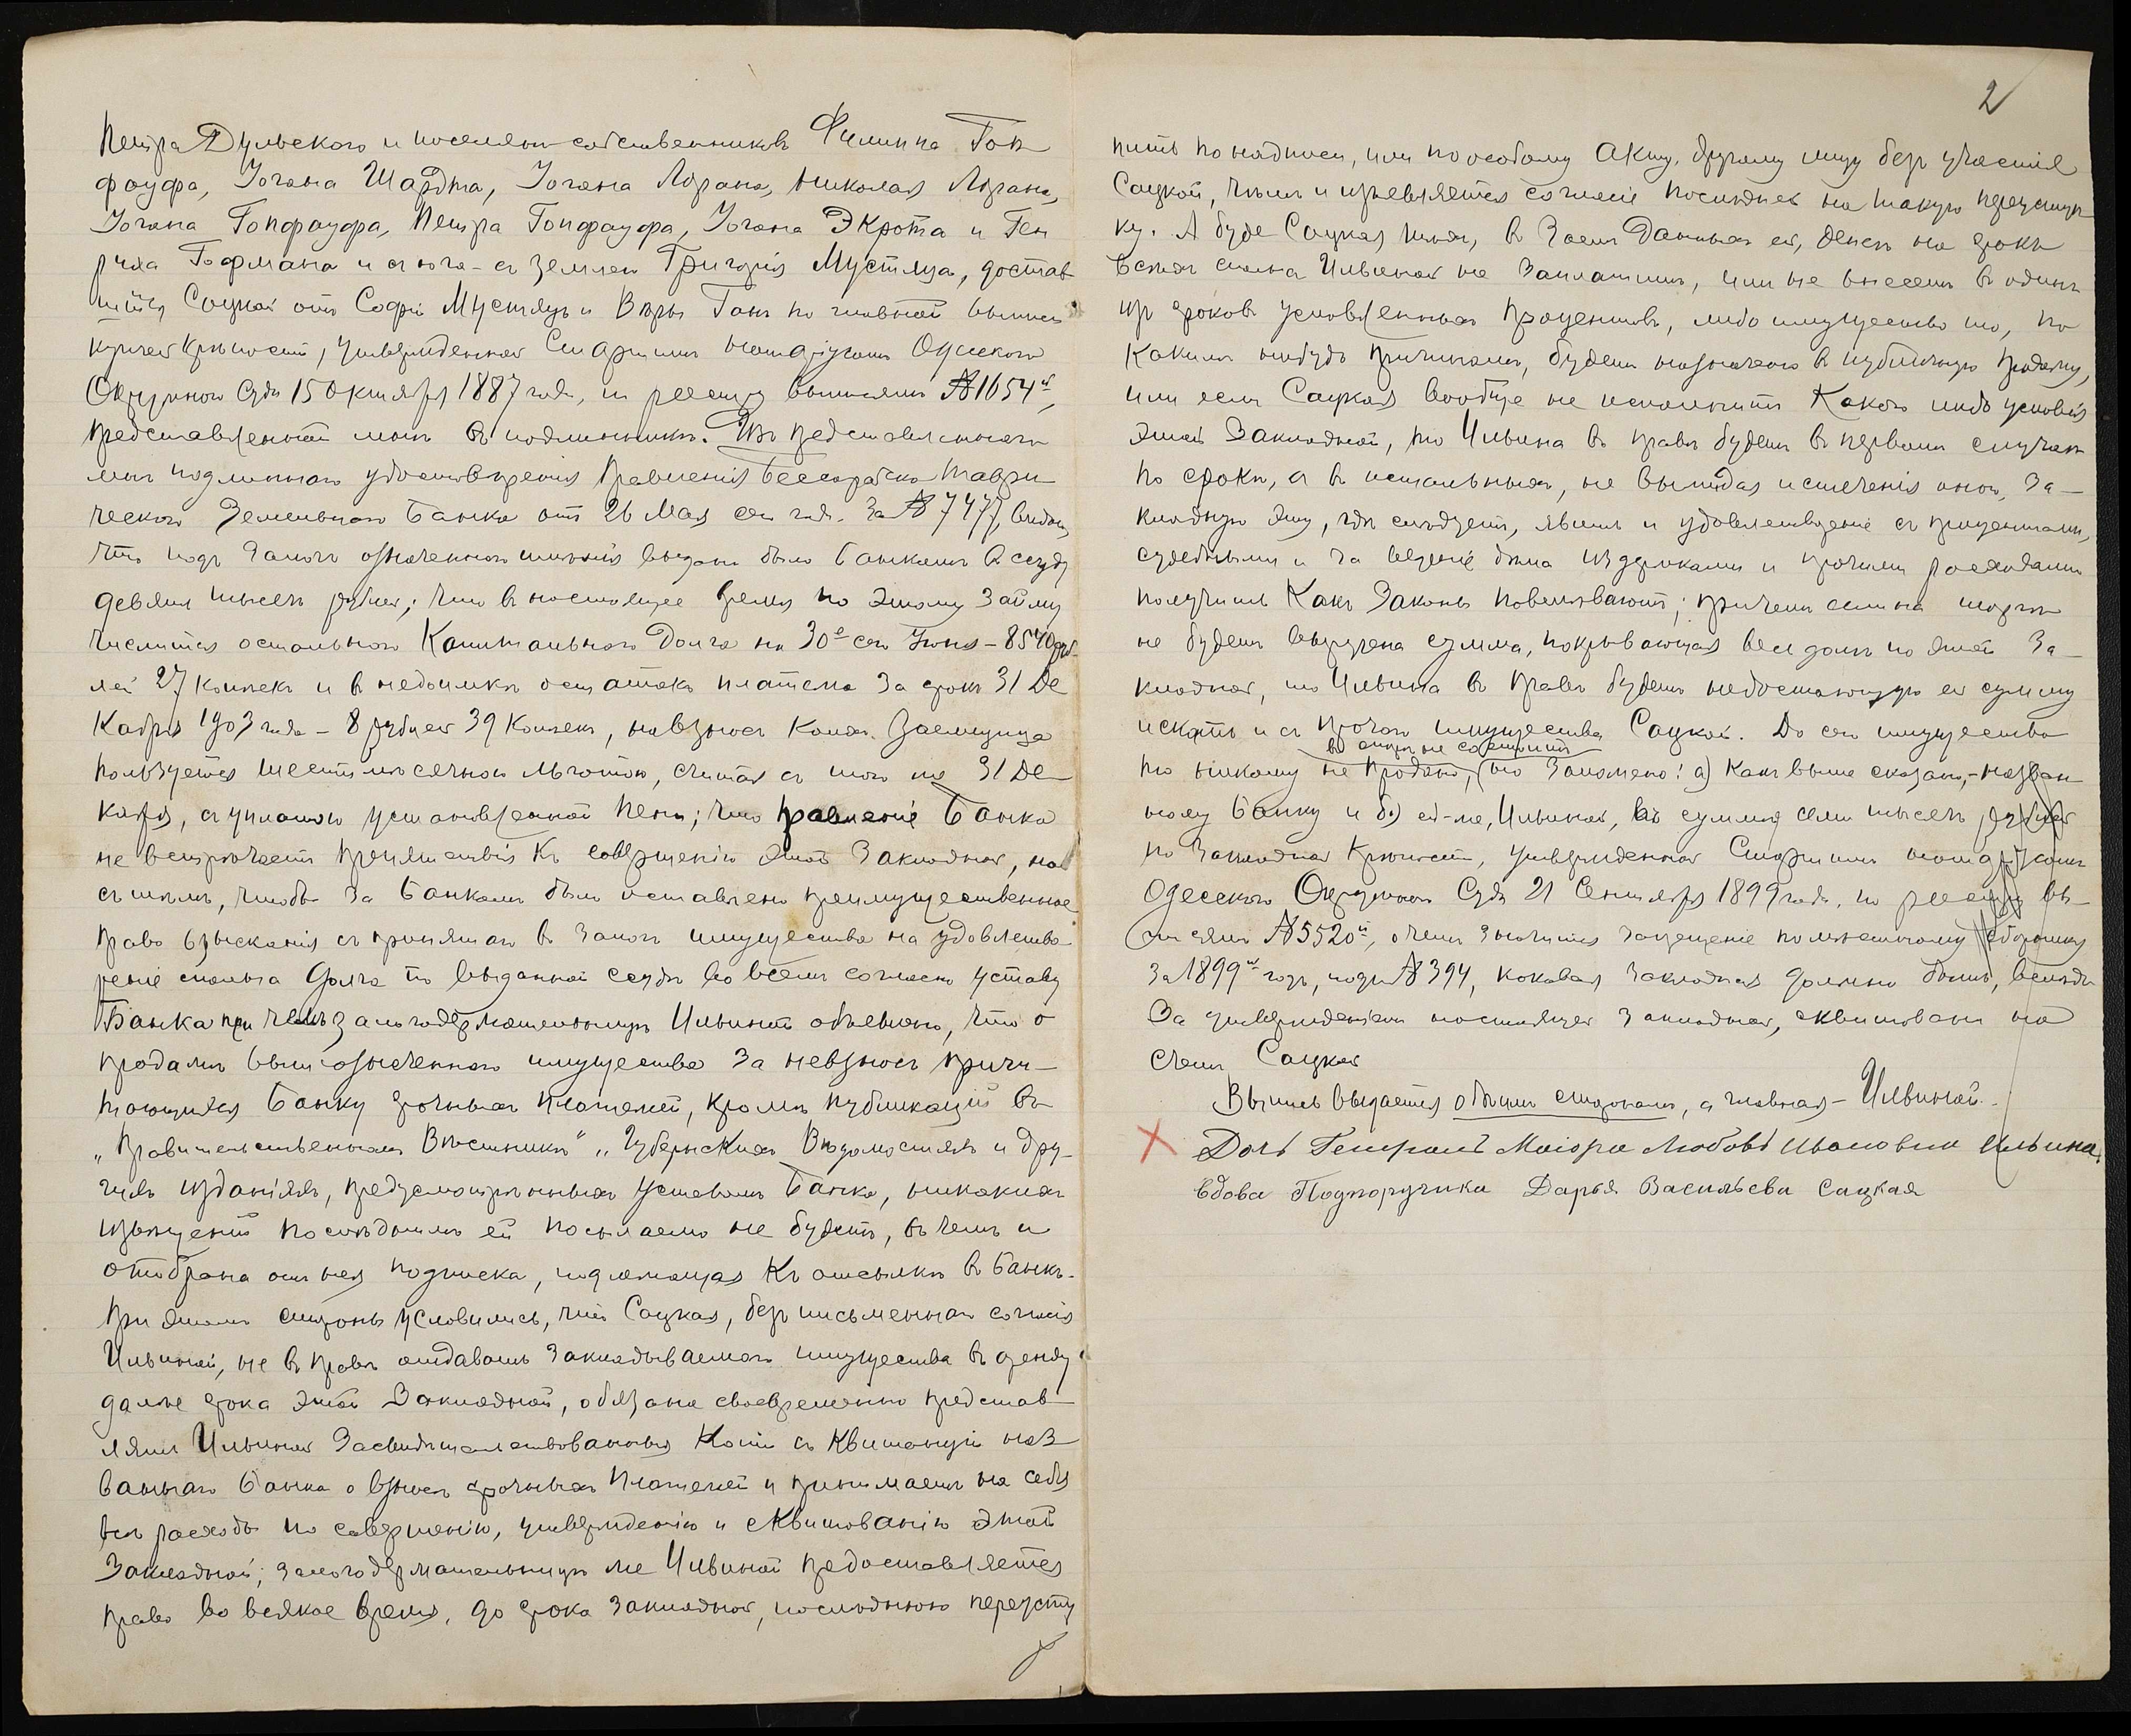 Петра Дульскаго и поселянъ-собственниковъ Филиппа Гоп
фауфа, Іогана Шардта, Іогана Лорана, Николая Лорана,
Іогана Гопфауфа, Петра Гопфауфа, Іогана Экрота и Ген
риха Гофмана и съ юга - съ землею Григорія Мустяца, достав
шійся Сацкой отъ Софіи Мустяцъ и Вѣры Ганъ по главной выписи
купчей крѣпости, утвержденной Старшимъ Нотаріусомъ Одесскаго
Окружнаго Суда 15 Октября 1887 года, по реестру выписямъ №1654й,
представленной мнѣ въ подлинникѣ. Изъ представленнаго
мнѣ подлиннаго удостовѣренія Правленія Бессарабско-Таври
ческаго Земельнаго Банка отъ 26 Мая сего года за №7477, видно,
что подъ залогъ означеннаго имѣнія выдано было Банкомъ въ ссуду
девять тысячъ рублей; что въ настоящее время по этому займу
числится остальнаго капитальнаго долга на 30е сего Іюня - 8540 руб
лей 27 копѣекъ и въ недоимкѣ остатокъ платежа за срокъ 31 Де
кабря 1903 года - 8 рублей 39 копѣекъ, на взносъ коихъ заемщица
пользуется шестимѣсячною льготою, считая съ того же 31 Де
кабря, съ уплатою установленной пени; что Правленіе Банка
не встрѣчаетъ препятствія къ совершенію этой закладной, но
съ тѣмъ, чтобы за Банкомъ было оставлено преимущественное
право взысканія съ принятаго въ залогъ имущества на удовлетво
реніе сполна долга по выданной ссудѣ во всемъ согласно уставу
Банка при чемъ залогодержательницѣ Ильиной объявлено, что о
продажѣ вышеозначеннаго имущества за невзносъ причи-
тающихся Банку срочныхъ платежей, кромѣ публикацій въ
„Правительственномъ Вѣстникѣ" „Губернскихъ Вѣдомостяхъ и дру-
гихъ изданіяхъ, предусмотрѣнныхъ уставомъ Банка, никакихъ
извѣщеній послѣднимъ ей посылаемо не будетъ, въ чемъ и
отобрана отъ нея подписка, подлежащая къ отсылкѣ въ Банкъ.
При этомъ стороны условились, что Сацкая, безъ письменнаго согласія
Ильиной, не въ правѣ отдавать закладываемаго имущества въ аренду
далѣе срока этой закладной, обязана своевременно представ
лять Ильиной засвидѣтельствованныя копіи съ квитанцій наз
ваннаго Банка о взносѣ срочныхъ платежей и принимаетъ на себя
всѣ расходы по совершенію, утвержденію и сквитованію этой
закладной; залогодержательницѣ же Ильиной предоставляется
право во всякое время, до срока закладной, последнюю переусту
2
пить по надписи, или по особому акту, другому лицу безъ участія
Сацкой, чѣмъ и изъявляется согласіе послѣдней на такую переуступ
ку. А буде Сацкая тѣхъ, въ заемъ данныхъ ей, денегъ на срокъ
всѣхъ сполна Ильиной не заплатитъ, или не внесетъ въ одинъ
изъ сроковъ условленныхъ процентовъ, либо имущество то, по
какимъ нибудь причинамъ, будетъ назначено въ публичную продажу,
или если Сацкая вообще не исполнитъ какого либо условія
этой закладной, то Ильина въ правѣ будетъ въ первомъ случаѣ
по срокѣ, а въ остальныхъ, не выжидая истеченія онаго, за-
кладную эту, гдѣ слѣдуетъ, явить и удовлетвореніе съ процентами,
судебными и за веденіе дѣла издержками и прочими расходами
получить какъ законы повелѣваютъ; при чемъ если на торгахъ
не будетъ выручена сумма, покрывающая весь долгъ по этой за-
кладной, то Ильина въ правѣ будетъ недостающую ей сумму
искать и съ прочаго имущества Сацкой. До сего имущество
въ спорѣ не состоитъ
то никому не продано, но заложено: а) какъ выше сказано, - назван
ному Банку и б) ей-же, Ильиной, въ суммѣ семи тысячъ рублей
по закладной крѣпости, утвержденной Старшимъ Нотаріусомъ
Одесскаго Окружнаго Суда 21 Сентября 1899 года, по реестру вы-
писямъ №5520й, о чемъ значится запрещеніе помѣщенному сборника
за 1899й годъ, подъ №394, каковая закладная должна быть, вслѣдъ
за утвержденіемъ настоящей закладной, сквитована на
счетъ Сацкой
Выпись выдается обѣимъ сторонамъ, а главная - Ильиной.
Дочь Генералъ Маіора Любовь Ивановна Ильина.
Вдова Подпоручика Дарья Васильева Сацкая